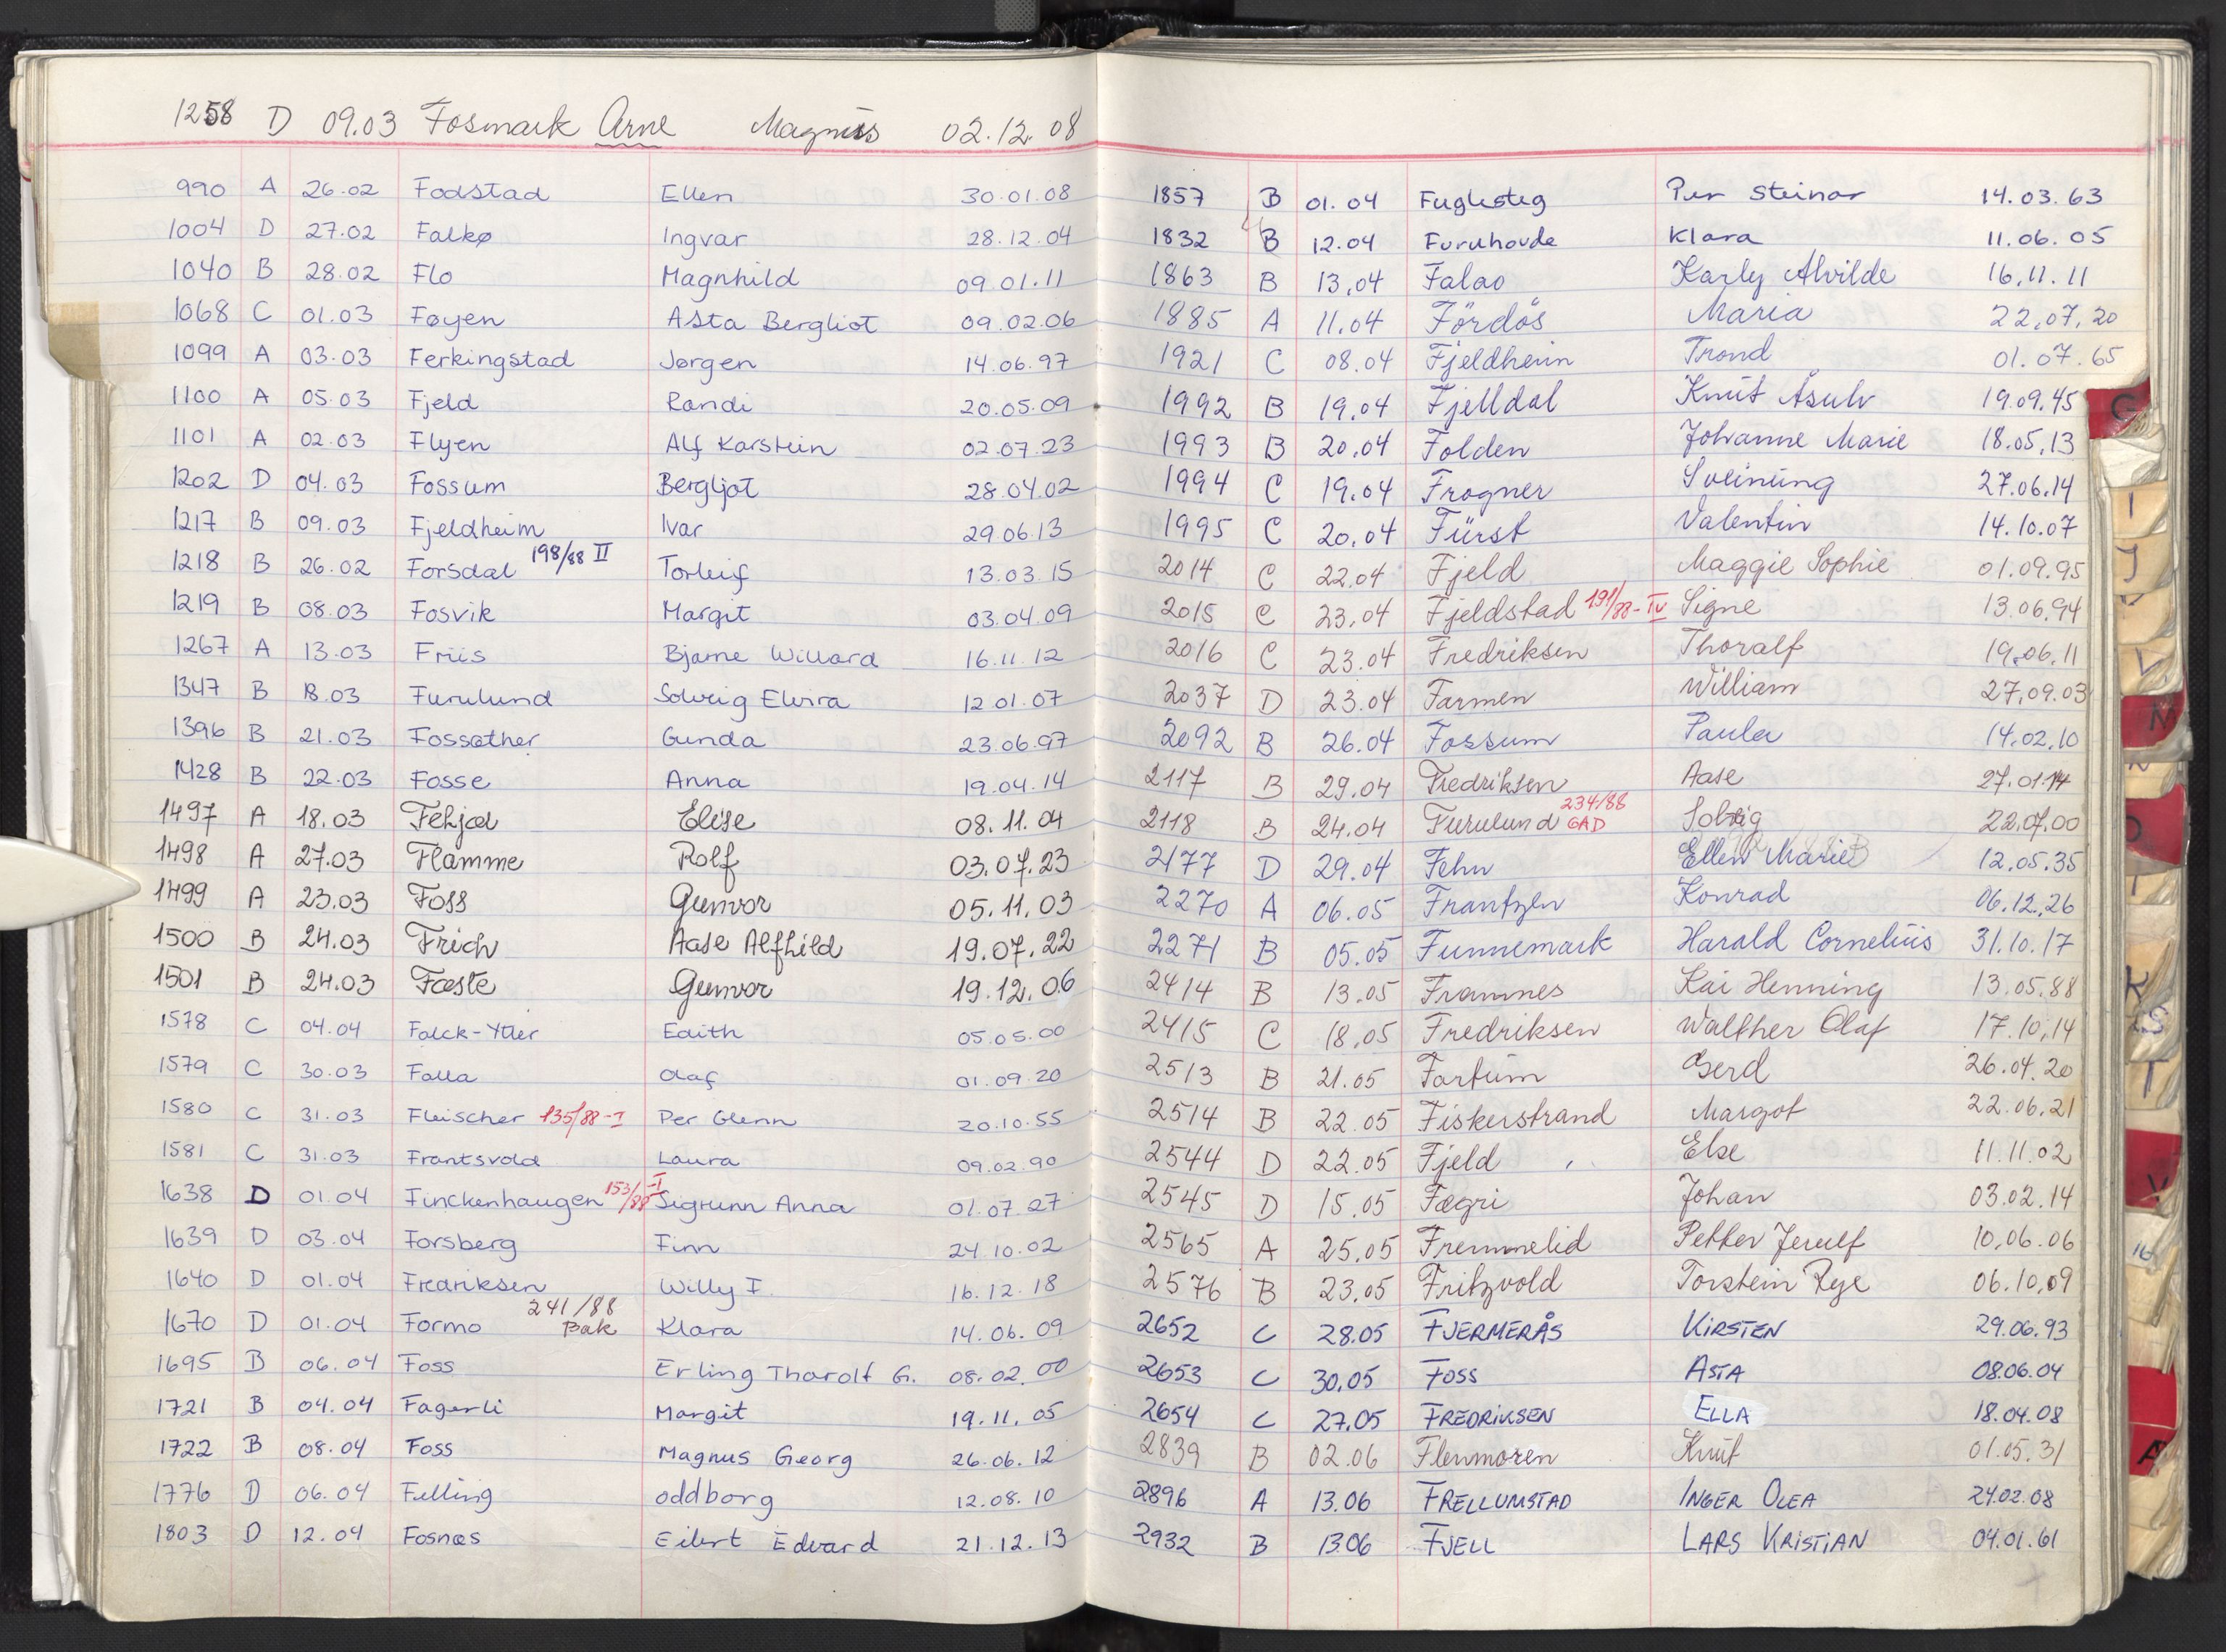 1258 D 09.03 Fosmark Arne Magnus 02.12.08
990 A 26.02 Fodstad Ellen 30.01.08
1004 D 27.02 Falkø Ingvar 28.12.04
1040 B 28.02 Flo Magnhild 09.01.11
1068 C 01.03 Føyen Asta Bergliot 09.02.06
1099 A 03.03 Ferkingstad Jørgen 14.06.97
1100 A 05.03 Fjeld Randi 20.05.09
1101 A 02.03 Flyen Alf Karstein 02.07.23
1202 D 04.03 Fossum Bergljot 28.04.02
1217 B 09.03 Fjeldheim Ivar 29.06.13
1218 B 26.02 Forsdal 198/88 II Torleif 13.03.15
1219 B 08.03 Fosvik Margit 03.04.09
1267 A 13.03 Friis Bjarne Willard 16.11.12
1347 B 18.03 Furulund Solveig Elvira 12.01.07
1396 B 21.03 Fossæther Gunda 23.06.97
1428 B 22.03 Fosse Anna 19.04.14
1497 A 18.03 Fehjæl Elise 08.11.04
1498 A 27.03 Flamme Rolf 03.07.23
1499 A 23.03 Foss Gunvor 05.11.03
1500 B 24.03 Frich Aase Alfhild 19.07.22
1501 B 24.03 Fæste Gunvor 19.12.06
1578 C 04.04 Falck-Ytter Edith 05.05.00
1579 C 30.03 Falla Olaf 01.09.20
1580 C 31.03 Fleischer 135/88-I Per Glenn 20.10.55
1581 C 31.03 Frantsvold Laura 09.02.90
1638 D 01.04 Finckenhaugen 153/88-I Sigrunn Anna 01.07.27
1639 D 03.04 Forsberg Finn 24.10.02
1640 D 01.04 Fredriksen Willy I. 16.12.18
1670 D 01.04 Formo 241/88 Bak Klara 14.06.09
1695 B 06.04 Foss Erling Tharolf G. 08.02.00
1721 B 04.04 Fagerli Margit 19.11.05
1722 B 08.04 Foss Magnus Georg 26.06.12
1776 D 06.04 Felling Oddborg 12.08.10
1803 D 12.04 Fosnæs Eilert Edvard 21.12.13
1857 B 01.04 Fuglesteg Per Steinar 14.03.63
1832 B 12.04 Furuhovde Klara 11.06.05
1863 B 13.04 Falao Karly Alvilde 16.11.11
1885 A 11.04 Fördös Maria 22.07.20
1921 C 08.04 Fjeldheim Trond 01.07.65
1992 B 19.04 Fjelldal Knut Åsulv 19.09.45
1993 B 20.04 Folden Johanne Marie 18.05.13
1994 C 19.04 Frogner Sveinung 27.06.14
1995 C 20.04 Fürst Valentin 14.10.07
2014 C 22.04 Fjeld Maggie Sophie 01.09.95
2015 C 23.04 Fjeldstad 191/88-IV Signe 13.06.94
2016 C 23.04 Fredriksen Thoralf 19.06.11
2037 D 23.04 Farmen William 27.09.03
2092 B 26.04 Fossum Paula 14.02.10
2117 B 29.04 Fredriksen Aase 27.01.14
2118 B 24.04 Furulund 234/88 GAD Solveig 22.07.00
2177 D 29.04 Fehn Ellen Marie 12.05.35
2270 A 06.05 Frantzen Konrad 06.12.26
2271 B 05.05 Funnemark Harald Cornelius 31.10.17
2414 B 13.05 Framnes Kai Henning 13.05.88
2415 C 18.05 Fredriksen Walther Olaf 17.10.14
2513 B 21.05 Fartum Gerd 26.04.20
2514 B 22.05 Fiskerstrand Margot 22.06.21
2544 D 22.05 Fjeld Else 11.11.02
2545 D 15.05 Fægri Johan 03.02.14
2565 A 25.05 Fremmelid Petter Jerulf 10.06.06
2576 B 23.05 Fritzvold Torstein Rye 06.10.09
2652 C 28.05 FJERMERÅS KIRSTEN 29.06.93
2653 C 30.05 FOSS ASTA 08.06.04
2654 C 27.05 FREDRIKSEN ELLA 18.04.08
2839 B 02.06 Flenmoren Knut 01.05.31
2896 A 13.06 FRELLUMSTAD INGER OLEA 24.02.08
2932 B 13.06 FJELL LARS KRISTIAN 04.01.61
G
I
J
M
S
T
V